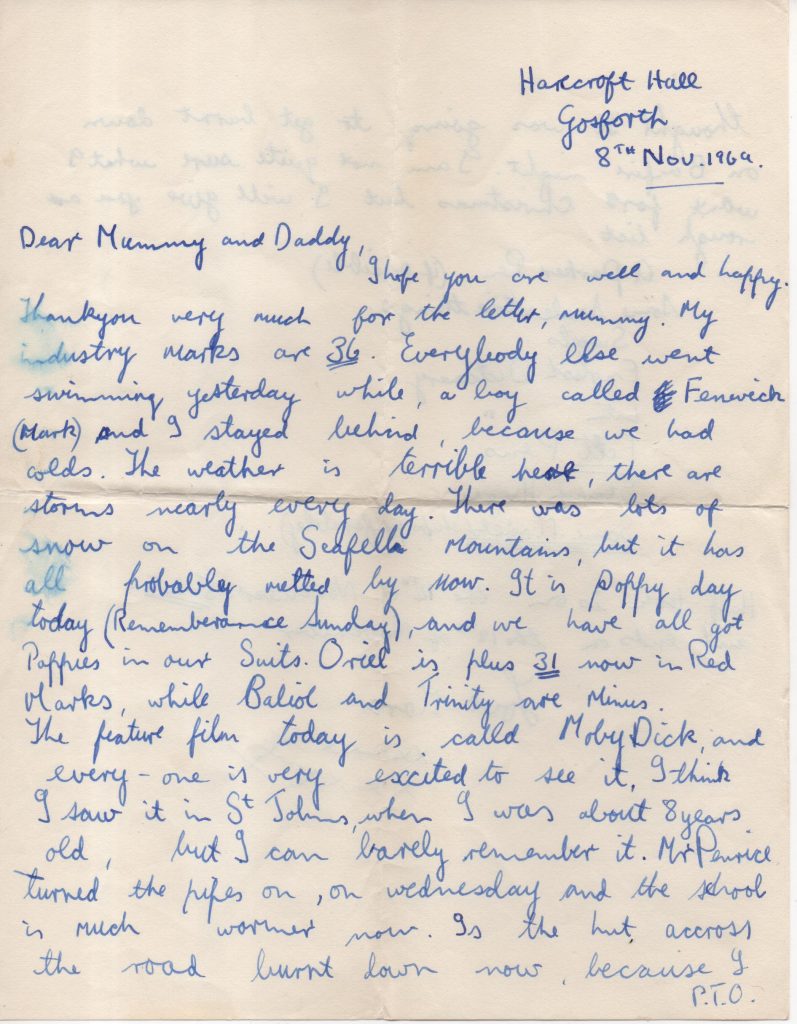 Harecroft Hall
Gosforth
8TH Nov. 1969.
Dear Mummy and Daddy,
I hope you are well and happy.
Thankyou very much for the letter, mummy. My
industry marks are 36. Everybody else went
swimming yesterday while, a boy called Fenwick
(Mark) and I stayed behind, because we had
colds. The weather is terrible here, there are
storms nearly every day. There was lots of
snow on the Scafell mountains, but it has
all probably melted by now. It is poppy day
today (Rememberance Sunday), and we have all got
Poppies in our Suits. Oriel is plus 31 now in Red
Marks, while Baliol and Trinity are minus.
The feature film today is called Moby Dick, and
every-one is very excited to see it, I think
I saw it in St Johns, when I was about 8 years
old, but I can barely remember it. Mr Penrice
turned the pipes on, on wednesday and the school
is much warmer now. Is the hut accross
the road burnt down now, because I
P.T.O.